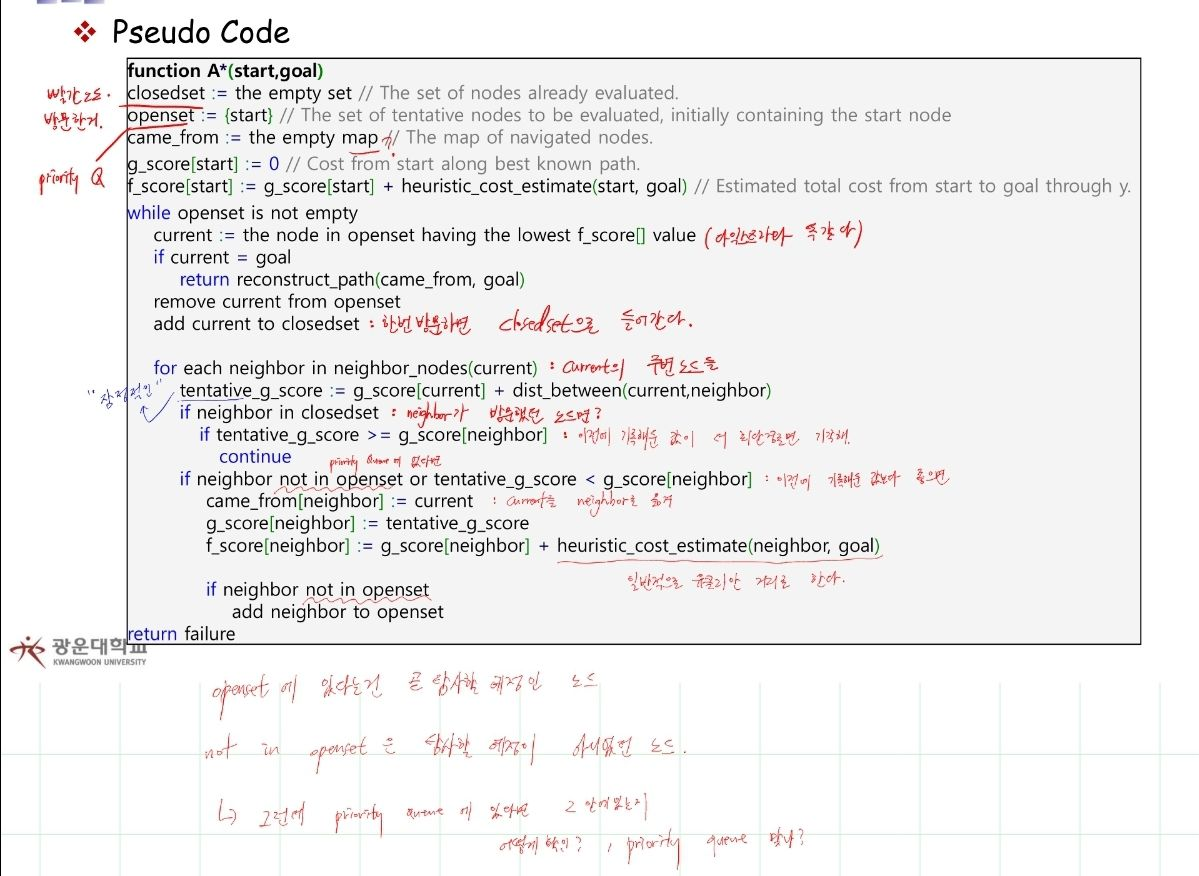 ❖ Pseudo Code
function A*(start,goal)
빨간노드.
closedset := the empty set // The set of nodes already evaluated.
방문한거.
openset := {start} // The set of tentative nodes to be evaluated, initially containing the start node
came_from := the empty map // The map of navigated nodes.
priority Q
g_score[start] := 0 // Cost from start along best known path.
f_score[start] := g_score[start] + heuristic_cost_estimate(start, goal) // Estimated total cost from start to goal through y.
while openset is not empty
current := the node in openset having the lowest f_score[] value (다익스트라와 똑같다)
if current = goal
return reconstruct_path(came_from, goal)
remove current from openset
add current to closedset : 한번 방문하면 closedset으로 들어간다.
for each neighbor in neighbor_nodes(current) : current의 주변노드들
"잠정적인" tentative_g_score := g_score[current] + dist_between(current,neighbor)
if neighbor in closedset : neighbor가 방문했던 노드면?
if tentative_g_score >= g_score[neighbor] : 이전에 기록해둔 값이 더 최단경로면 기각해.
continue
priority queue에 있다면
if neighbor not in openset or tentative_g_score < g_score[neighbor] : 이전에 기록해둔 값보다 좋으면
came_from[neighbor] := current : current를 neighbor로 옮겨
g_score[neighbor] := tentative_g_score
f_score[neighbor] := g_score[neighbor] + heuristic_cost_estimate(neighbor, goal)
일반적으로 유클리안 거리로 한다.
if neighbor not in openset
add neighbor to openset
return failure
광운대학교
KWANGWOON UNIVERSITY
openset에 있다는건 곧 탐사할 예정인 노드
not in openset은 탐사할 예정이 아니였던 노드.
↳ 그런데 priority queue에 있다면 그 안에있는지
어떻게 확인? , priority queue 맞나?